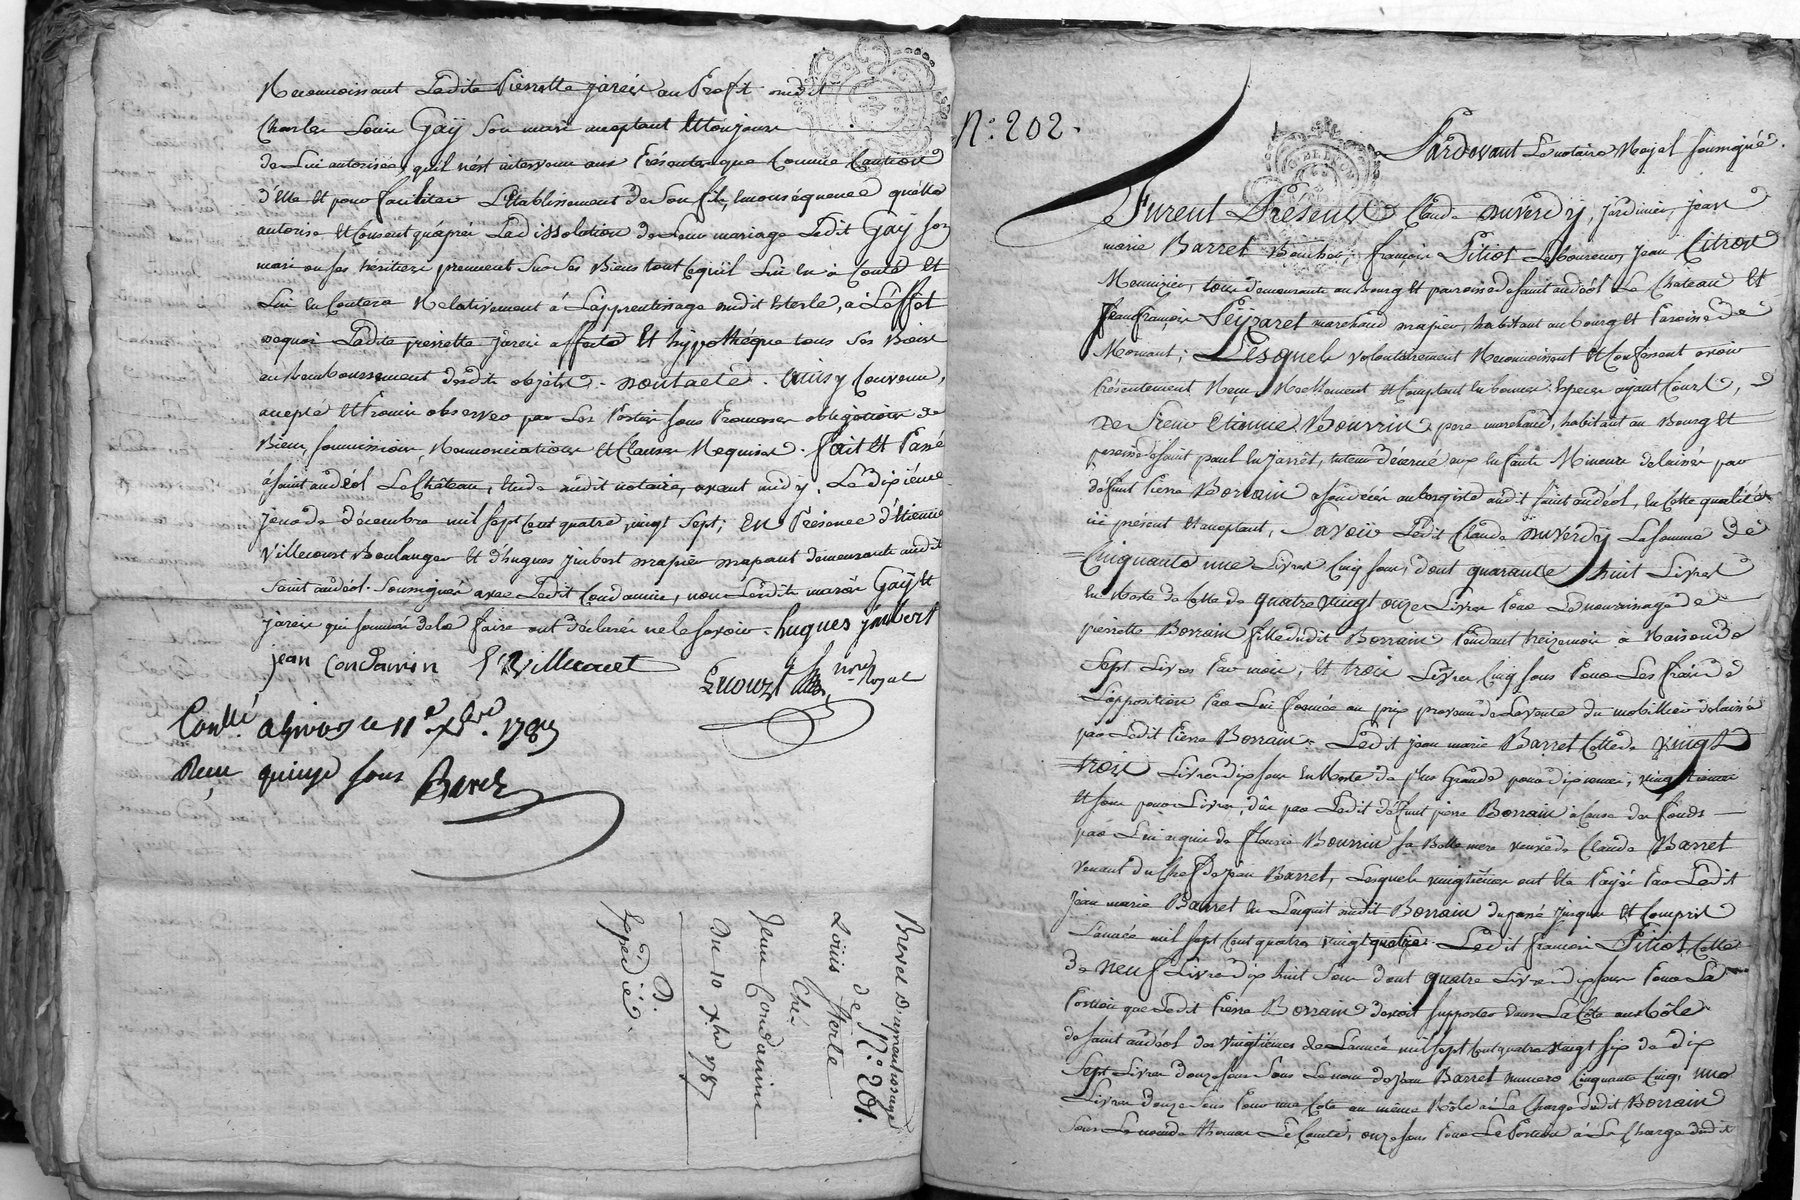 Reconnoissant Ladite Pierrette jarez au Profit mdit
Charles Louis Gaÿ Son mari acceptant Et toujours
de Lui autorisée, quil n'est intervenu aux Présentes que Comme Caution
d'Elle Et pour faciliter L'Etablissement de Son fils, Enconséquence quelle
autorise Et Consent qu'après La dissolution de Leur mariage Ledit Gaÿ Son
mari ou ses héritiers prennent Sur Ses Biens tout Cequ'il Lui En à Couté Et
Lui En Coutera Relativement à L'apprentissage mdit Sterle, à L'effet
dequoi Ladite pierrette jarez affecte Et hypothéque tous Ses Biens
au Remboursement desdits objets. dont acte. Ainsy Convenu,
accepté Et Promis observer par Les Parties sous Promesses obligations de
Biens, soumissions, Renonciations Et Clauses Requises. fait Et Passé
à saint andéol Le Château, Etude dudit notaire, avant midy, Le dixième
jour de décembre mil sept Cent quatre vingt sept; En Présence d'Etienne
Villecourt Boulanger Et d'hugues jmbert maçon demeurants audit
Saint andéol. Soussignés avec Ledit Condamin, non Lesdits mariés Gaÿ Et
jarez qui sommés de Le faire ont déclaré ne le savoir. hugues jmbert
jean Condamin E Villecourt
nre Royal
Conllé. a Givors le 11e. Xbre. 1787
Reçu quinze sous
Brevet d'aprentissage
de N.o 201.
Louis Sterle
Chés
Jean Condamine
Du 10 Xbre 1787
D.
Expédié.
N.o 202.
Pardevant Le notaire Royal soussigné.
Furent Présents Claude Duverdÿ, jardinier, jean
marie Barret Boucher, françois Pitiot Laboureur, Jean Citron
Menuisier, tous demeurants au Bourg Et paroisse de saint andéol Le Château Et
Jean françois Peÿzaret marchand maçon, habitant au bourg Et Paroisse de
Mornant; Lesquels volontairement Reconnoissent Et Confessent avoir
Présentement Reçu Réellement Et Comptant En bonnes Especes ayant Cours,
De Sieur Etienne Bouvrin pere marchand, habitant au Bourg Et
paroisse de saint paul En jarrêt, tuteur décerné aux Enfants Mineurs delaissés par
défunt Pierre Borrain a son décès aubergiste audit saint andéol, En Cette qualité
ici présent Et acceptant, Savoir Ledit Claude Duverdÿ La somme de
Cinquante une Livres Cinq sous, dont quarante huit Livres
En Reste de Celle de quatre vingt onze Livres Pour Le nourrissage de
pierrette Borrain fille dudit Borrain Pendant treize mois à Raison de
Sept Livres Par mois, Et trois Livres Cinq sous Pour Les frais de
L'opposition Par Lui formée au prix provenu de La vente du mobillier delaissé
par Ledit Pierre Borrain. Ledit jean marie Barret Celle de vingt
trois Livres dix sous En Reste de plus Grande pour dixiemes, vingtiemes
Et sous pour Livres, dûs par Ledit défunt pierre Borrain à Cause des fonds
par Lui acquis de fleurie Bouvrin sa Belle mere veuve de Claude Barret
venant du Chef de jean Barret, Lesquels vingtièmes ont Eté Payés Par Ledit
jean marie Barret En L'acquit mdit Borrain du passé jusques Et Compris
L'année mil sept Cent quatre vingt quatre. Ledit françois Pitiot, Celle
de neuf Livres dix huit sous dont quatre Livres dix sous Pour La
Portion que Ledit Pierre Borrain devoit supporter dans La Côte au Rôle
de saint andéol des vingtièmes de L'année mil sept Cent quatre vingt six de dix
Sept Livres douze sous sous Le nom de jean Barret numero Cinquante Cinq, une
Livre douze sous Pour une Côte au même Rôle à La Charge dudit Borrain
sous Le nom de thomas Le Comte, onze sous Pour La Portion à La Charge dudit